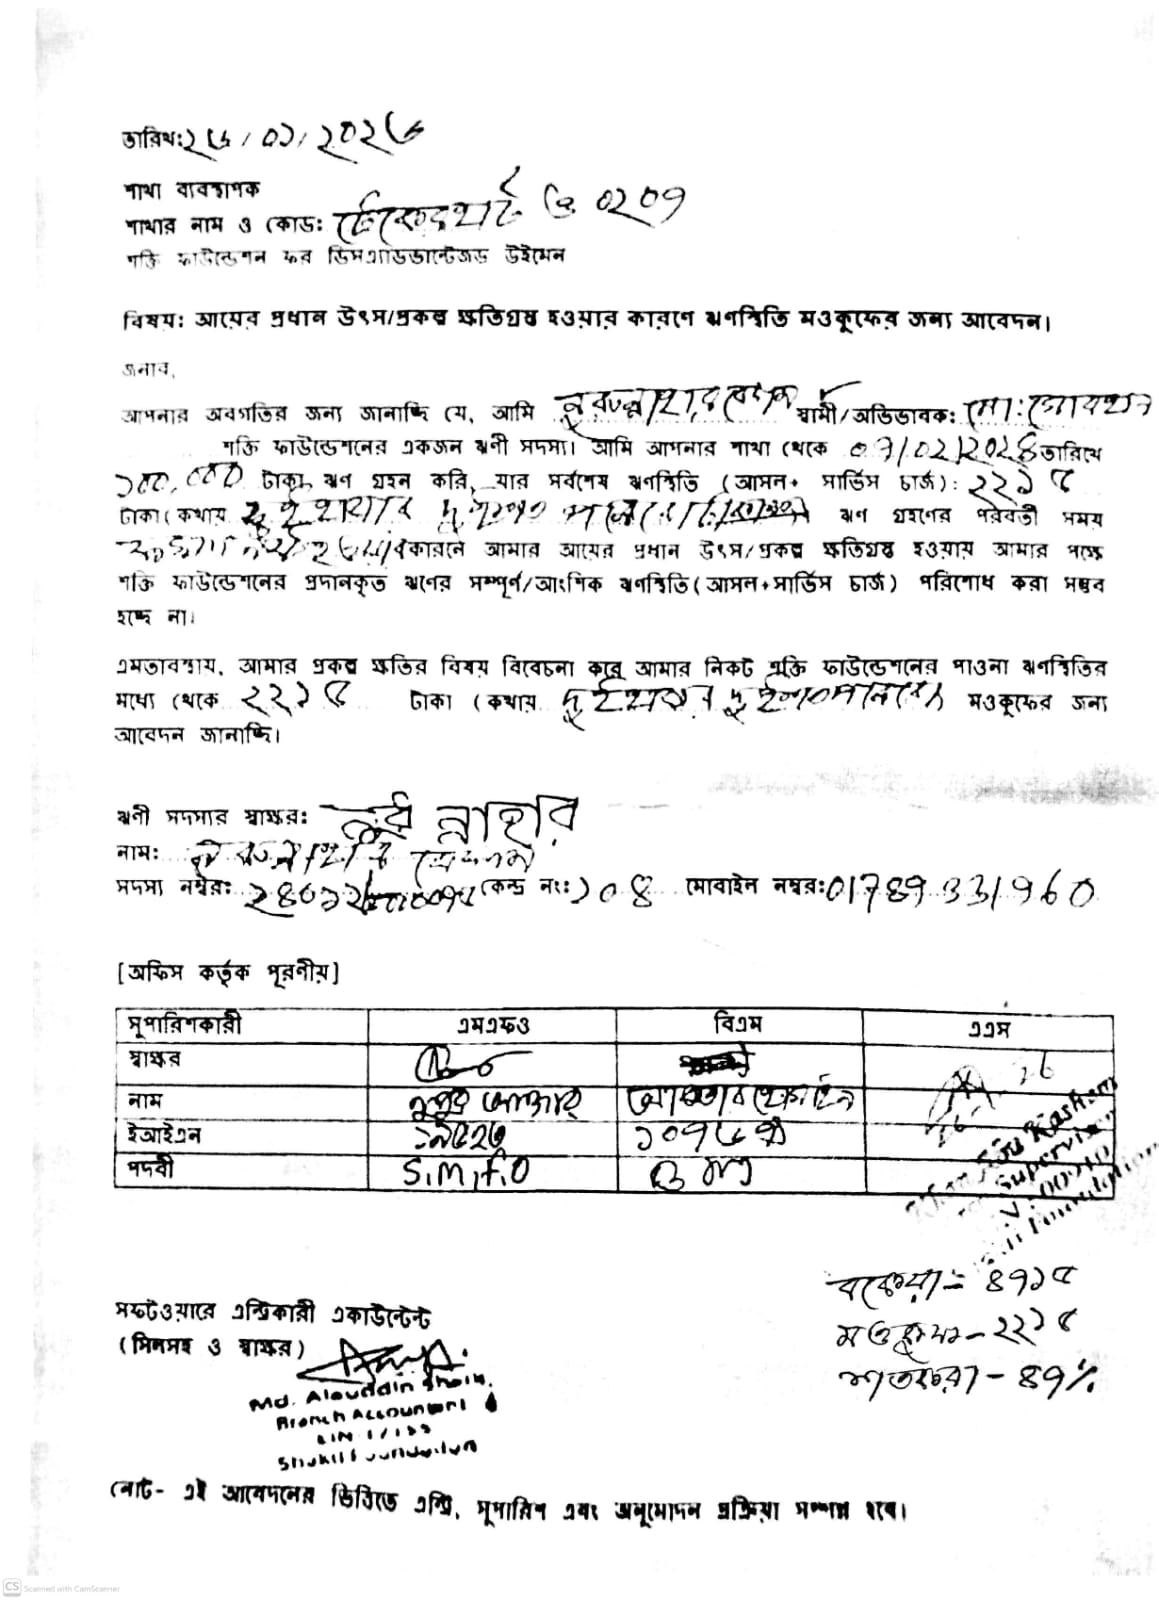 তারিখ: ২৬/০১/২০২৬
শাখা ব্যবস্থাপক
শাখার নাম ও কোড: টেকেরহাট ও ০২০৭
শক্তি ফাউন্ডেশন ফর ডিসএ্যাডভান্টেজড উইমেন
বিষয়: আয়ের প্রধান উৎস/প্রকল্প ক্ষতিগ্রস্ত হওয়ার কারণে ঋণস্থিতি মওকুফের জন্য আবেদন।
জনাব,
আপনার অবগতির জন্য জানাচ্ছি যে, আমি নুরুন্নাহার বেগম স্বামী/অভিভাবক: মো:
শক্তি ফাউন্ডেশনের একজন ঋণী সদস্য। আমি আপনার শাখা থেকে ০৭/০২/২০২৪ তারিখে
১০০,০০০ টাকা ঋণ গ্রহন করি, যার সর্বশেষ ঋণস্থিতি (আসল+ সার্ভিস চার্জ): ২২১৫
টাকা (কথায় দুই হাজার দুইশত পনের ঋণ গ্রহণের পরবর্তী সময়
কারনে আমার আয়ের প্রধান উৎস/প্রকল্প ক্ষতিগ্রস্ত হওয়ায় আমার পক্ষে
শক্তি ফাউন্ডেশনের প্রদানকৃত ঋণের সম্পূর্ণ/আংশিক ঋণস্থিতি(আসল+সার্ভিস চার্জ) পরিশোধ করা সম্ভব
হচ্ছে না।
এমতাবস্থায়, আমার প্রকল্প ক্ষতির বিষয় বিবেচনা করে আমার নিকট শক্তি ফাউন্ডেশনের পাওনা ঋণস্থিতির
মধ্যে থেকে ২২১৫ টাকা (কথায় দুই হাজার দুইশত পনের) মওকুফের জন্য
আবেদন জানাচ্ছি।
ঋণী সদস্যর স্বাক্ষর: নুর নাহার
নাম: নুরুন্নাহার বেগম
সদস্য নম্বর: কেন্দ্র নং: ১০৪ মোবাইল নম্বর: 01789331960
[অফিস কর্তৃক পূরণীয়]
সুপারিশকারী এমএফও বিএম এএস
স্বাক্ষর
নাম নুপুর আক্তার
ইআইএন ১৯৫২৬
পদবী S.M.F.O B M
Supervisor
বকেয়া = ৪৭১৫
মওকুফ - ২২১৫
শতকরা - ৪৭%
সফটওয়ারে এন্ট্রিকারী একাউন্টেন্ট
(সিলসহ ও স্বাক্ষর)
Md. Alauddin Shaik
Branch Accountant
Shakti Foundation
নোট- এই আবেদনের ভিত্তিতে এন্ট্রি, সুপারিশ এবং অনুমোদন প্রক্রিয়া সম্পন্ন হবে।
CS Scanned with CamScanner